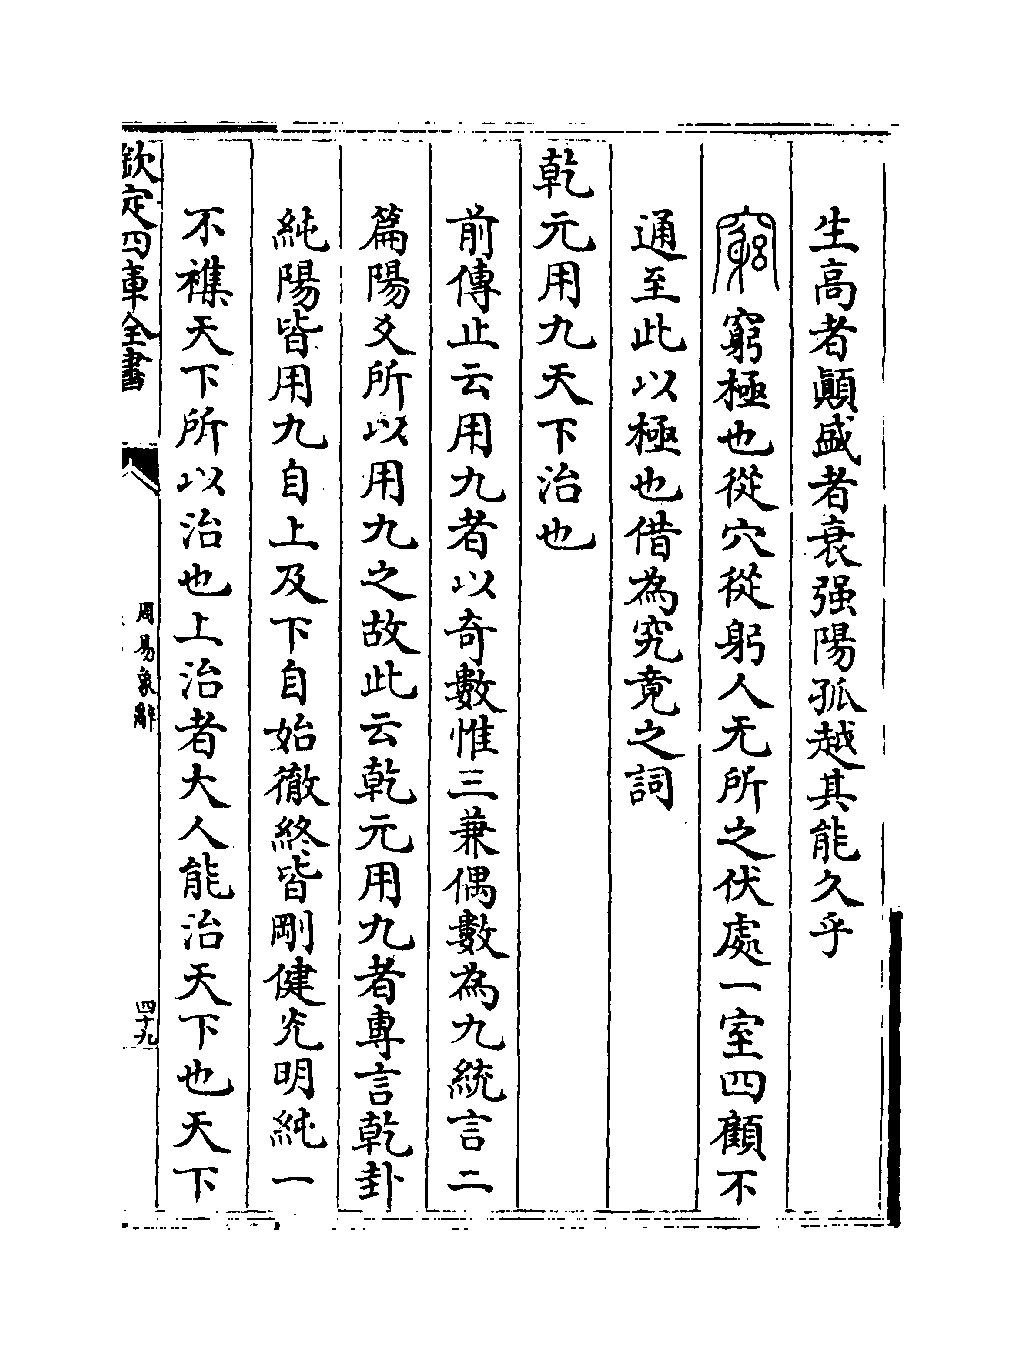 生高者顚盛者衰强陽孤越其能久乎
窮 窮極也從穴從躬人无所之伏處一室四顧不
通至此以極也借為究竟之詞
乾元用九天下治也
前傳止云用九者以奇數惟三兼偶數為九統言二
篇陽爻所以用九之故此云乾元用九者專言乾卦
純陽皆用九自上及下自始徹終皆剛健光明純一
不襍天下所以治也上治者大人能治天下也天下
欽定四庫全書
周易象辭
四十九